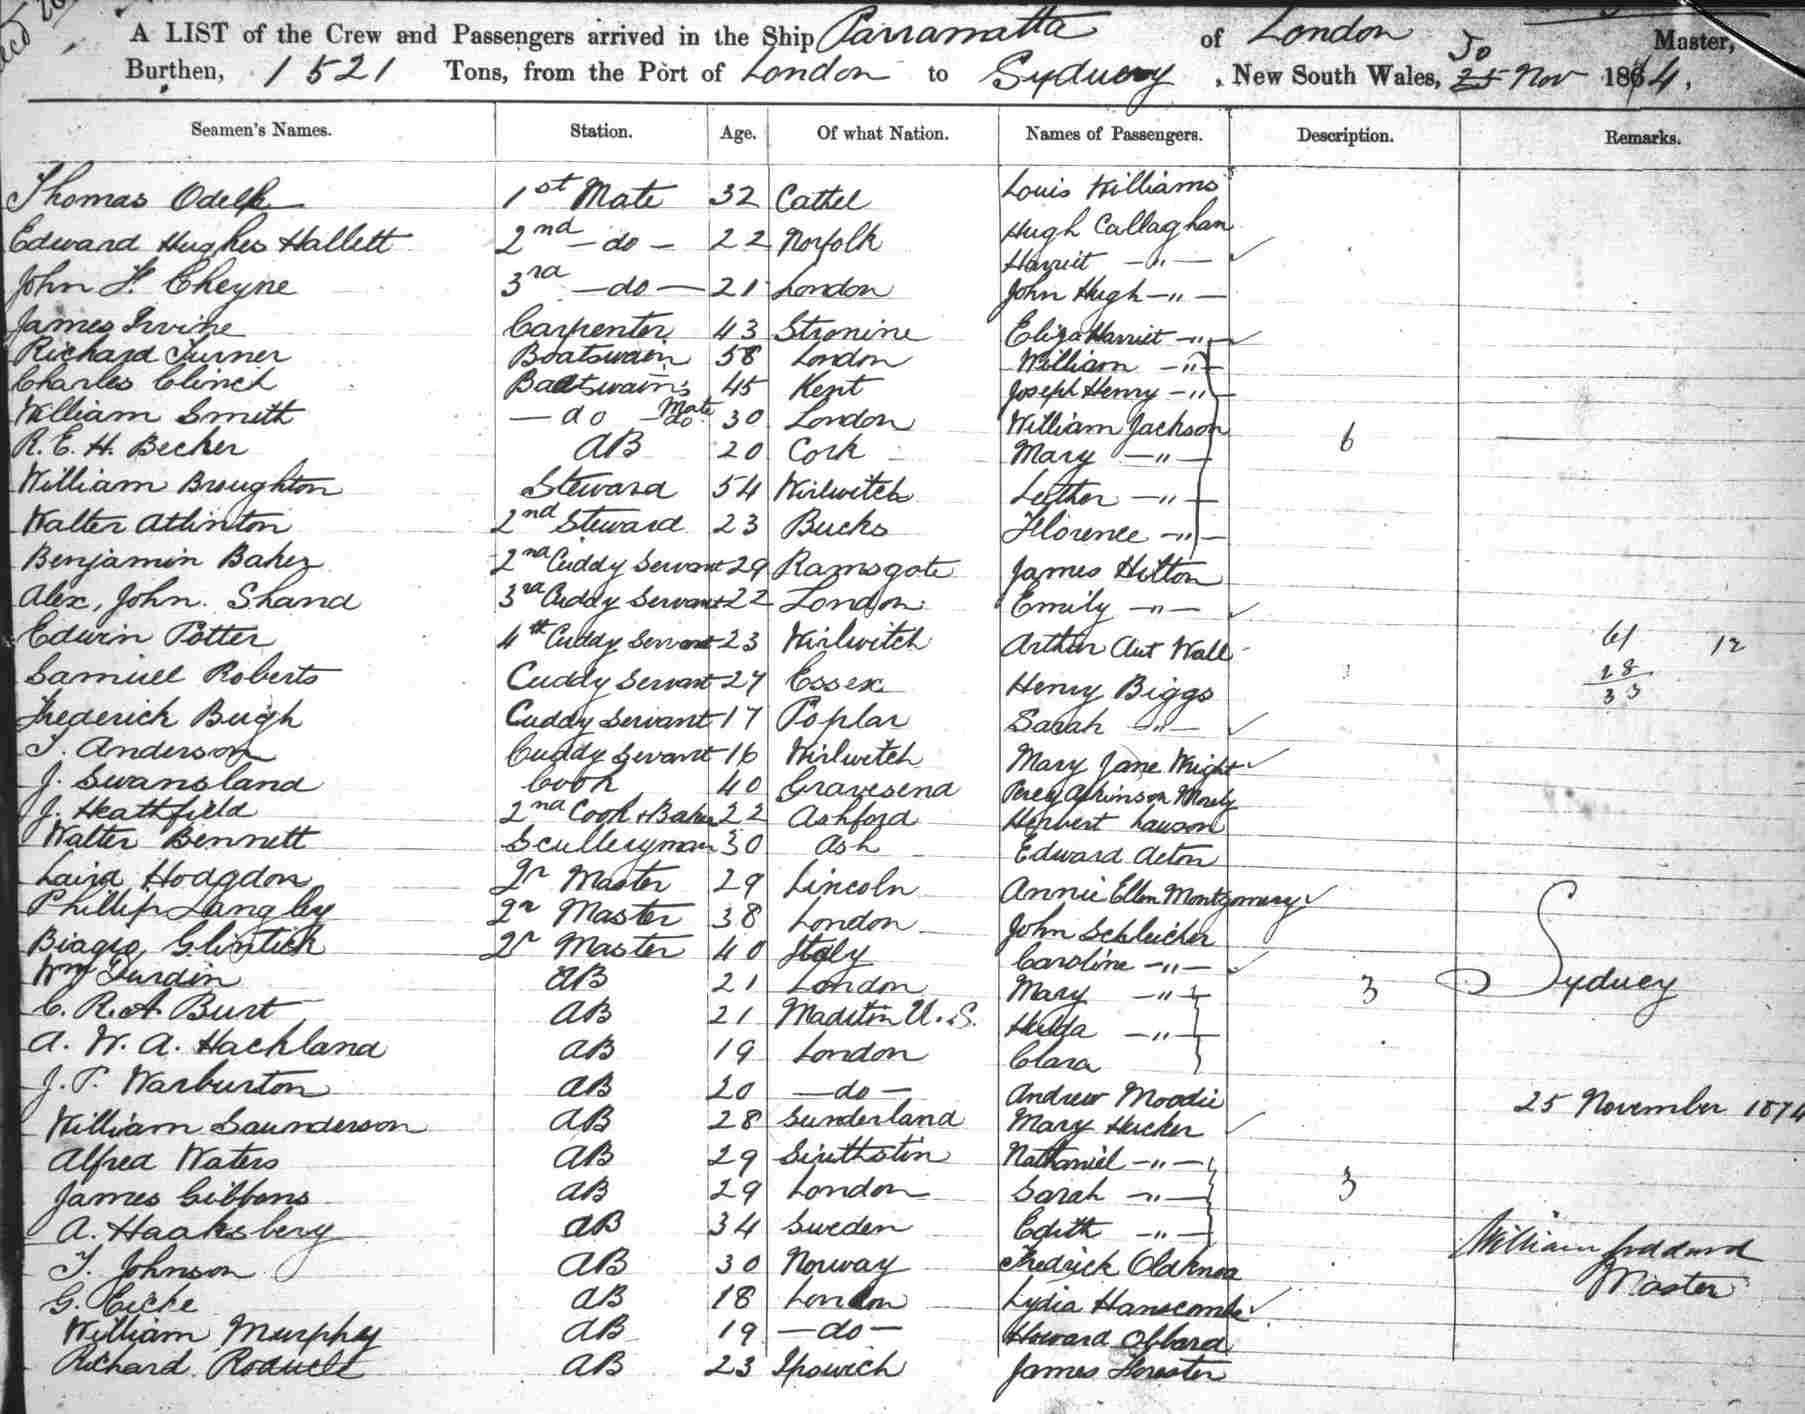 A LIST of the Crew and Passengers arrived in the Ship Parramatta of London Master,
Burthen, 1521 Tons, from the Port of London to Sydney, New South Wales, 25 Nov 1874.
Seamen's Names. Station. Age. Of what Nation. Names of Passengers. Description. Remarks.
Thomas Odell 1st Mate 32 Cathel Louis Williams
Edward Hughes Hallett 2nd —do— 22 Norfolk Hugh Callaghan
Harriet —"—
John F. Cheyne 3rd —do— 21 London John Hugh —"—
James Irvine Carpenter 43 Eliza Harriet —"—
Richard Turner Boatswain 58 London William —"—
Charles Clinch Boatswain's Mate 45 Kent Joseph Henry —"—
William Smith —do— do 30 London William Jackson
R. E. H. Becher AB 20 Cork Mary —"— 6
William Broughton Steward 54 Luther —"—
Walter Atlinton 2nd Steward 23 Bucks Florence —"—
Benjamin Baker 2nd Cuddy Servant 29 Ramsgate James Hilton
Alex, John Shand 3rd Cuddy Servant 22 London Emily —"—
Edwin Potter 4th Cuddy Servant 23 Arthur Wall 61 12
Samuel Roberts Cuddy Servant 27 Essex Henry Biggs 28
33
Frederick Bugh Cuddy Servant 17 Poplar Sarah —"—
T. Anderson Cuddy Servant 16 Mary Jane Wright
J. Swansland Cook 40 Gravesend Percy Atkinson
J. Heathfield 2nd Cook + Baker 22 Ashford Herbert Lawson
Walter Bennett Sculleryman 30 Ash Edward Acton
Laird Hodgdon Qr Master 29 Lincoln Annie Ellen Montgomery
Phillip Langley Qr Master 38 London John Schleicher
Biagio Qr Master 40 Italy Caroline —"—
Wm AB 21 London Mary —"— 3 Sydney
C. R. A. Burt AB 21 U.S. Hulda —"—
A. W. A. Hackland AB 19 London Clara
J. P. Warburton AB 20 —do— Andrew Moodie
25 November 1874
William Saunderson AB 28 Sunderland Mary Hucker
Alfred Waters AB 29 Nathaniel —"—
James Gibbons AB 29 London Sarah —"— 3
A. Haaksberg AB 34 Sweden Edith —"—
William Goddard
T. Johnson AB 30 Norway Fredrick
Master
G. Eicke AB 18 London Lydia Hanscombe
William Murphy AB 19 —do— Howard Obbard
Richard AB 23 Ipswich James Forester